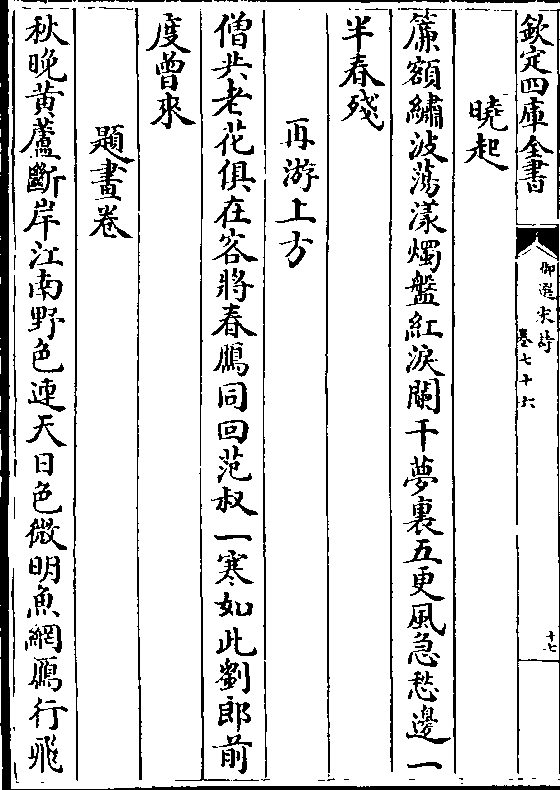 欽定四庫全書
御選宋詩
卷七十六
十七
曉起
簾額繡波蕩漾燭盤紅淚闌干夢裏五更風急愁邊一
半春殘
再游上方
僧共老花俱在客將春鴈同回范叔一寒如此劉郎前
度曾來
題畫卷
秋晚黃蘆斷岸江南野色連天日色微明魚網鴈行飛